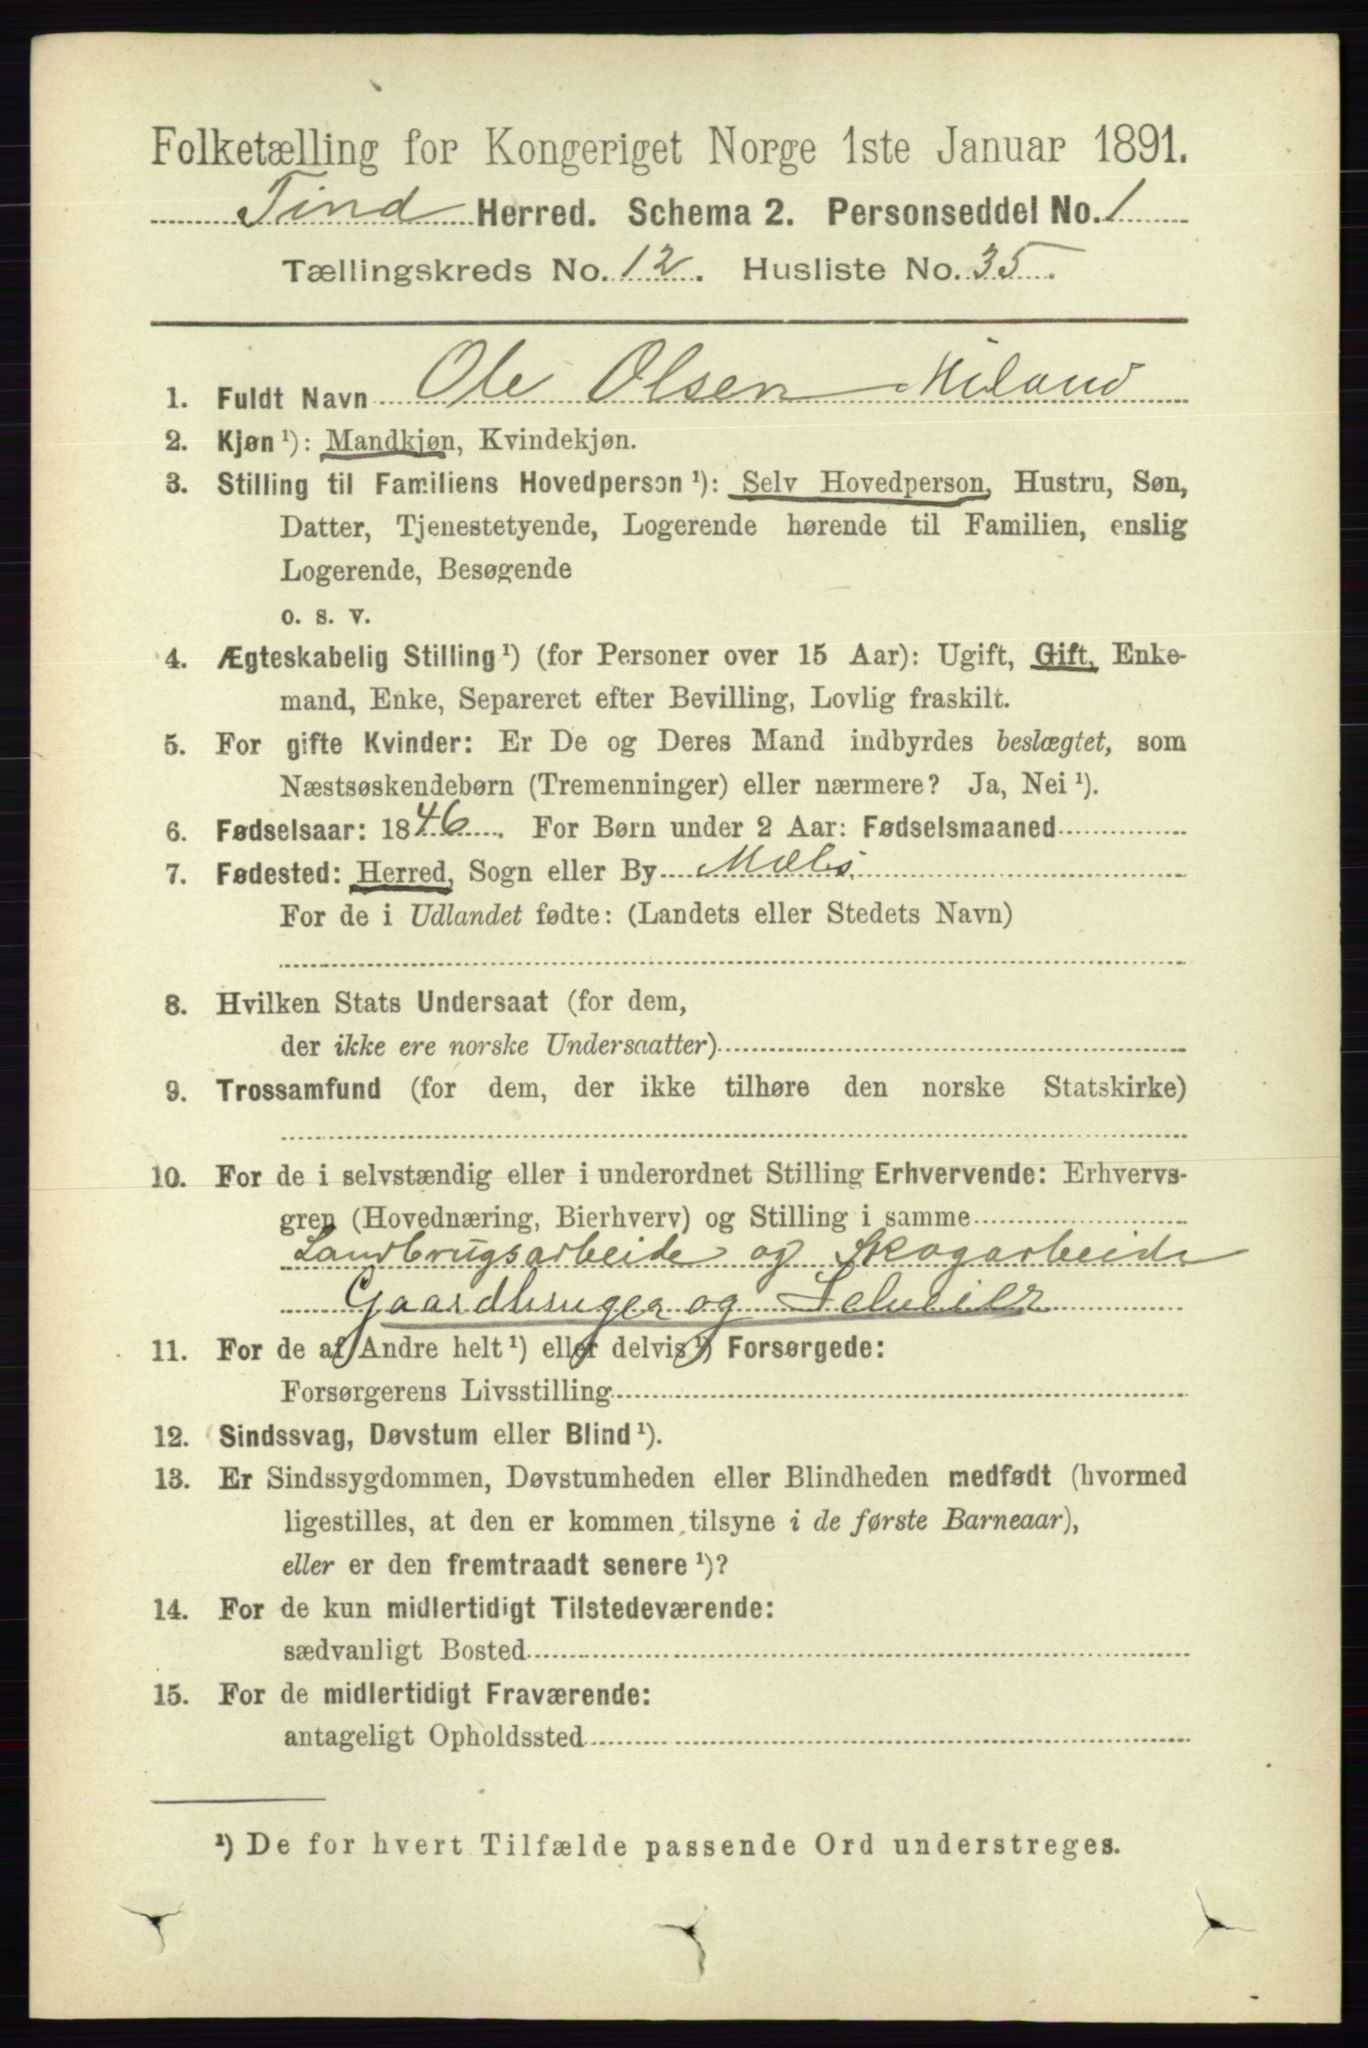 Folketælling for Kongeriget Norge 1ste Januar 1891.
Tind Herred. Schema 2. Personseddel No. 1
Tællingskreds No. 12. Husliste No. 35.
1. Fuldt Navn Ole Olsen Miland
2. Kjøn ¹): Mandkjøn, Kvindekjøn.
3. Stilling til Familiens Hovedperson ¹): Selv Hovedperson, Hustru, Søn,
Datter, Tjenestetyende, Logerende hørende til Familien, enslig
Logerende, Besøgende
o. s. v.
4. Ægteskabelig Stilling ¹) (for Personer over 15 Aar): Ugift, Gift, Enke-
mand, Enke, Separeret efter Bevilling, Lovlig fraskilt.
5. For gifte Kvinder: Er De og Deres Mand indbyrdes beslægtet, som
Næstsøskendebørn (Tremenninger) eller nærmere? Ja, Nei ¹).
6. Fødselsaar: 1846. For Børn under 2 Aar: Fødselsmaaned
7. Fødested: Herred, Sogn eller By
For de i Udlandet fødte: (Landets eller Stedets Navn)
8. Hvilken Stats Undersaat (for dem,
der ikke ere norske Undersaatter)
9. Trossamfund (for dem, der ikke tilhøre den norske Statskirke)
10. For de i selvstændig eller i underordnet Stilling Erhvervende: Erhvervs-
gren (Hovednæring, Bierhverv) og Stilling i samme
Landbrugsarbeide og Skogarbeide
Gaardbruger og Selveier
11. For de af Andre helt ¹) eller delvis ¹) Forsørgede:
Forsørgerens Livsstilling
12. Sindssvag, Døvstum eller Blind ¹).
13. Er Sindssygdommen, Døvstumheden eller Blindheden medfødt (hvormed
ligestilles, at den er kommen tilsyne i de første Barneaar),
eller er den fremtraadt senere ¹)?
14. For de kun midlertidigt Tilstedeværende:
sædvanligt Bosted
15. For de midlertidigt Fraværende:
antageligt Opholdssted
¹) De for hvert Tilfælde passende Ord understreges.